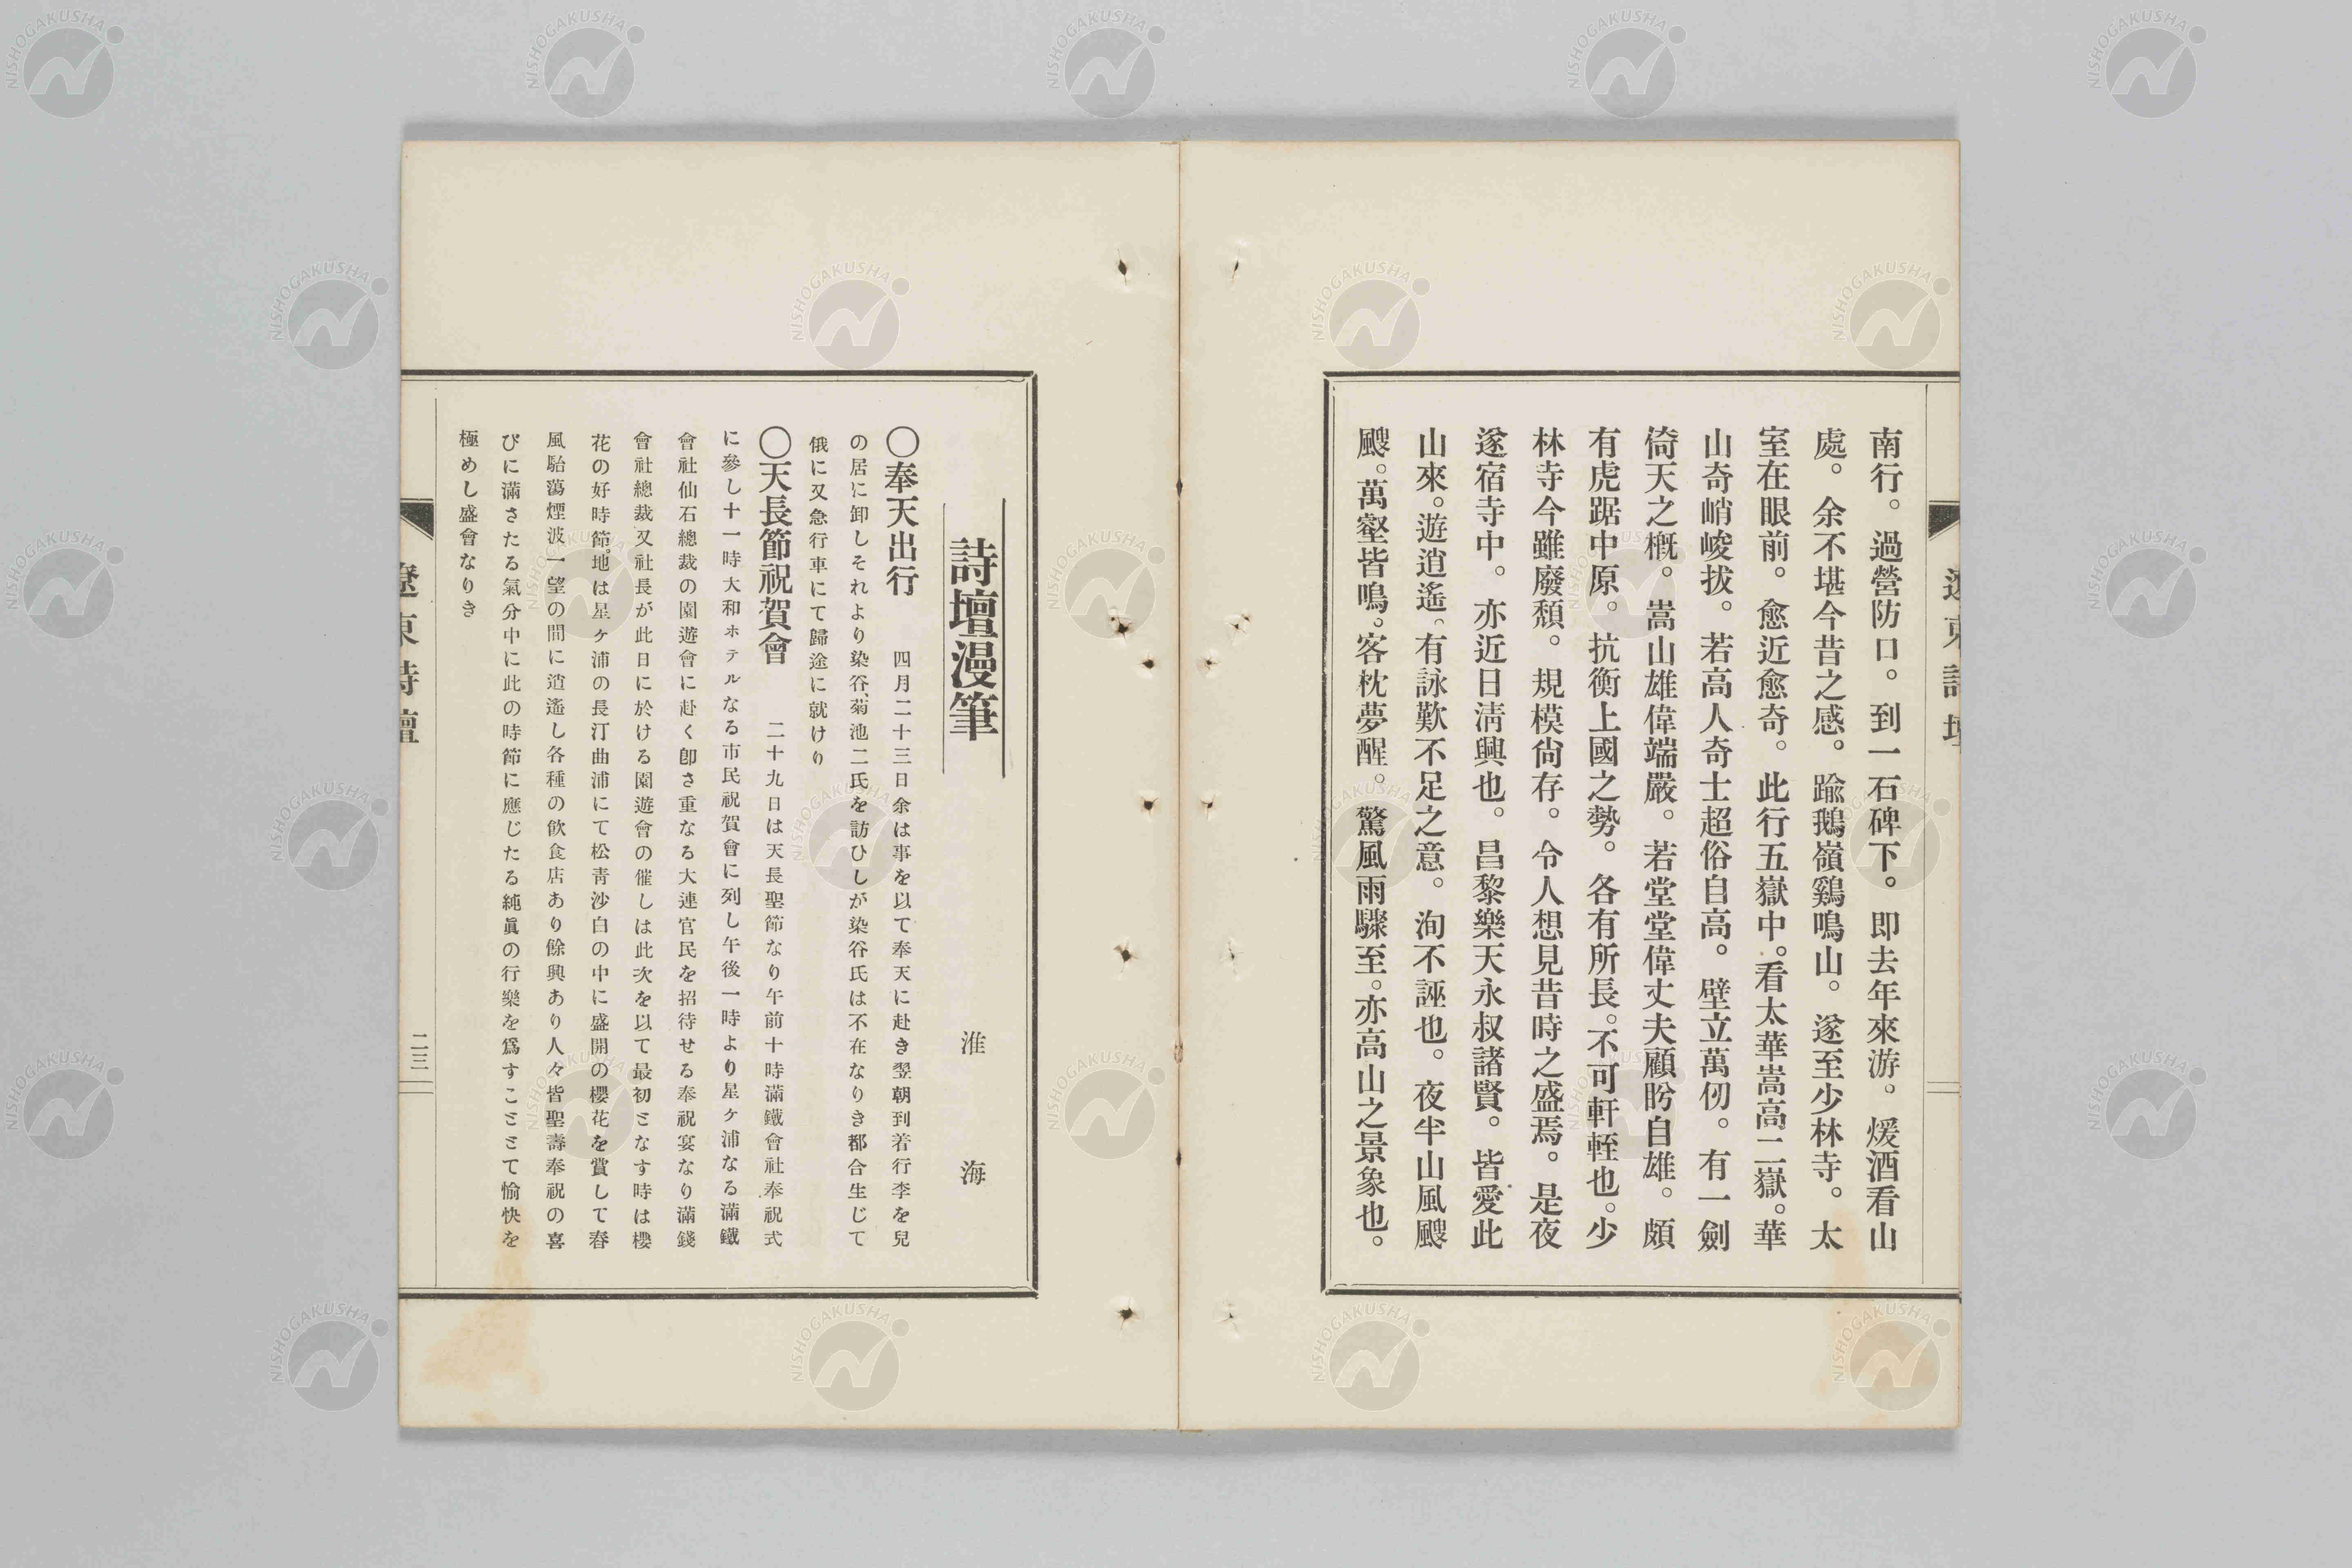 南行。過營防口。到一石碑下。即去年來游。煖酒看山
處。余不堪今昔之感。踰鵝嶺鷄鳴山。遂至少林寺。太
室在眼前。愈近愈奇。此行五嶽中。看太華嵩高二嶽。華
山奇峭峻拔。若高人奇士超俗自高。壁立萬仞。有一劍
倚天之概。嵩山雄偉端嚴。若堂堂偉丈夫顧盻自雄。頗
有虎踞中原。抗衡上國之勢。各有所長。不可軒輊也。少
林寺今雖廢頽。規模尙存。令人想見昔時之盛焉。是夜
遂宿寺中。亦近日淸興也。昌黎樂天永叔諸賢。皆愛此
山來。遊逍遙。有詠歎不足之意。洵不誣也。夜半山風颼
颼。萬壑皆鳴。客枕夢醒。驚風雨驟至。亦高山之景象也。
詩壇漫筆
淮海
〇奉天出行 四月二十三日余は事を以て奉天に赴き翌朝到着行李を兒
の居に卸しそれより染谷、菊池二氏を訪ひしが染谷氏は不在なりき都合生じて
俄に又急行車にて歸途に就けり
〇天長節祝賀會 二十九日は天長聖節なり午前十時滿鐵會社奉祝式
に參し十一時大和ホテルなる市民祝賀會に列し午後一時より星ケ浦なる滿鐵
會社仙石總裁の園遊會に赴く卽さ重なる大連官民を招待せる奉祝宴なり滿錢
會社總裁又社長が此日に於ける園遊會の催しは此次を以て最初ミなす時は櫻
花の好時節。地は星ヶ浦の長汀曲浦にて松靑沙白の中に盛開の櫻花を賞して春
風駘蕩煙波一望の間に逍遙し各種の飮食店あり餘興あり人々皆聖壽奉祝の喜
びに滿さたる氣分中に此の時節に應じたる純眞の行樂を爲すこミミて愉快を
極めし盛會なりき
遼東詩壇
二三